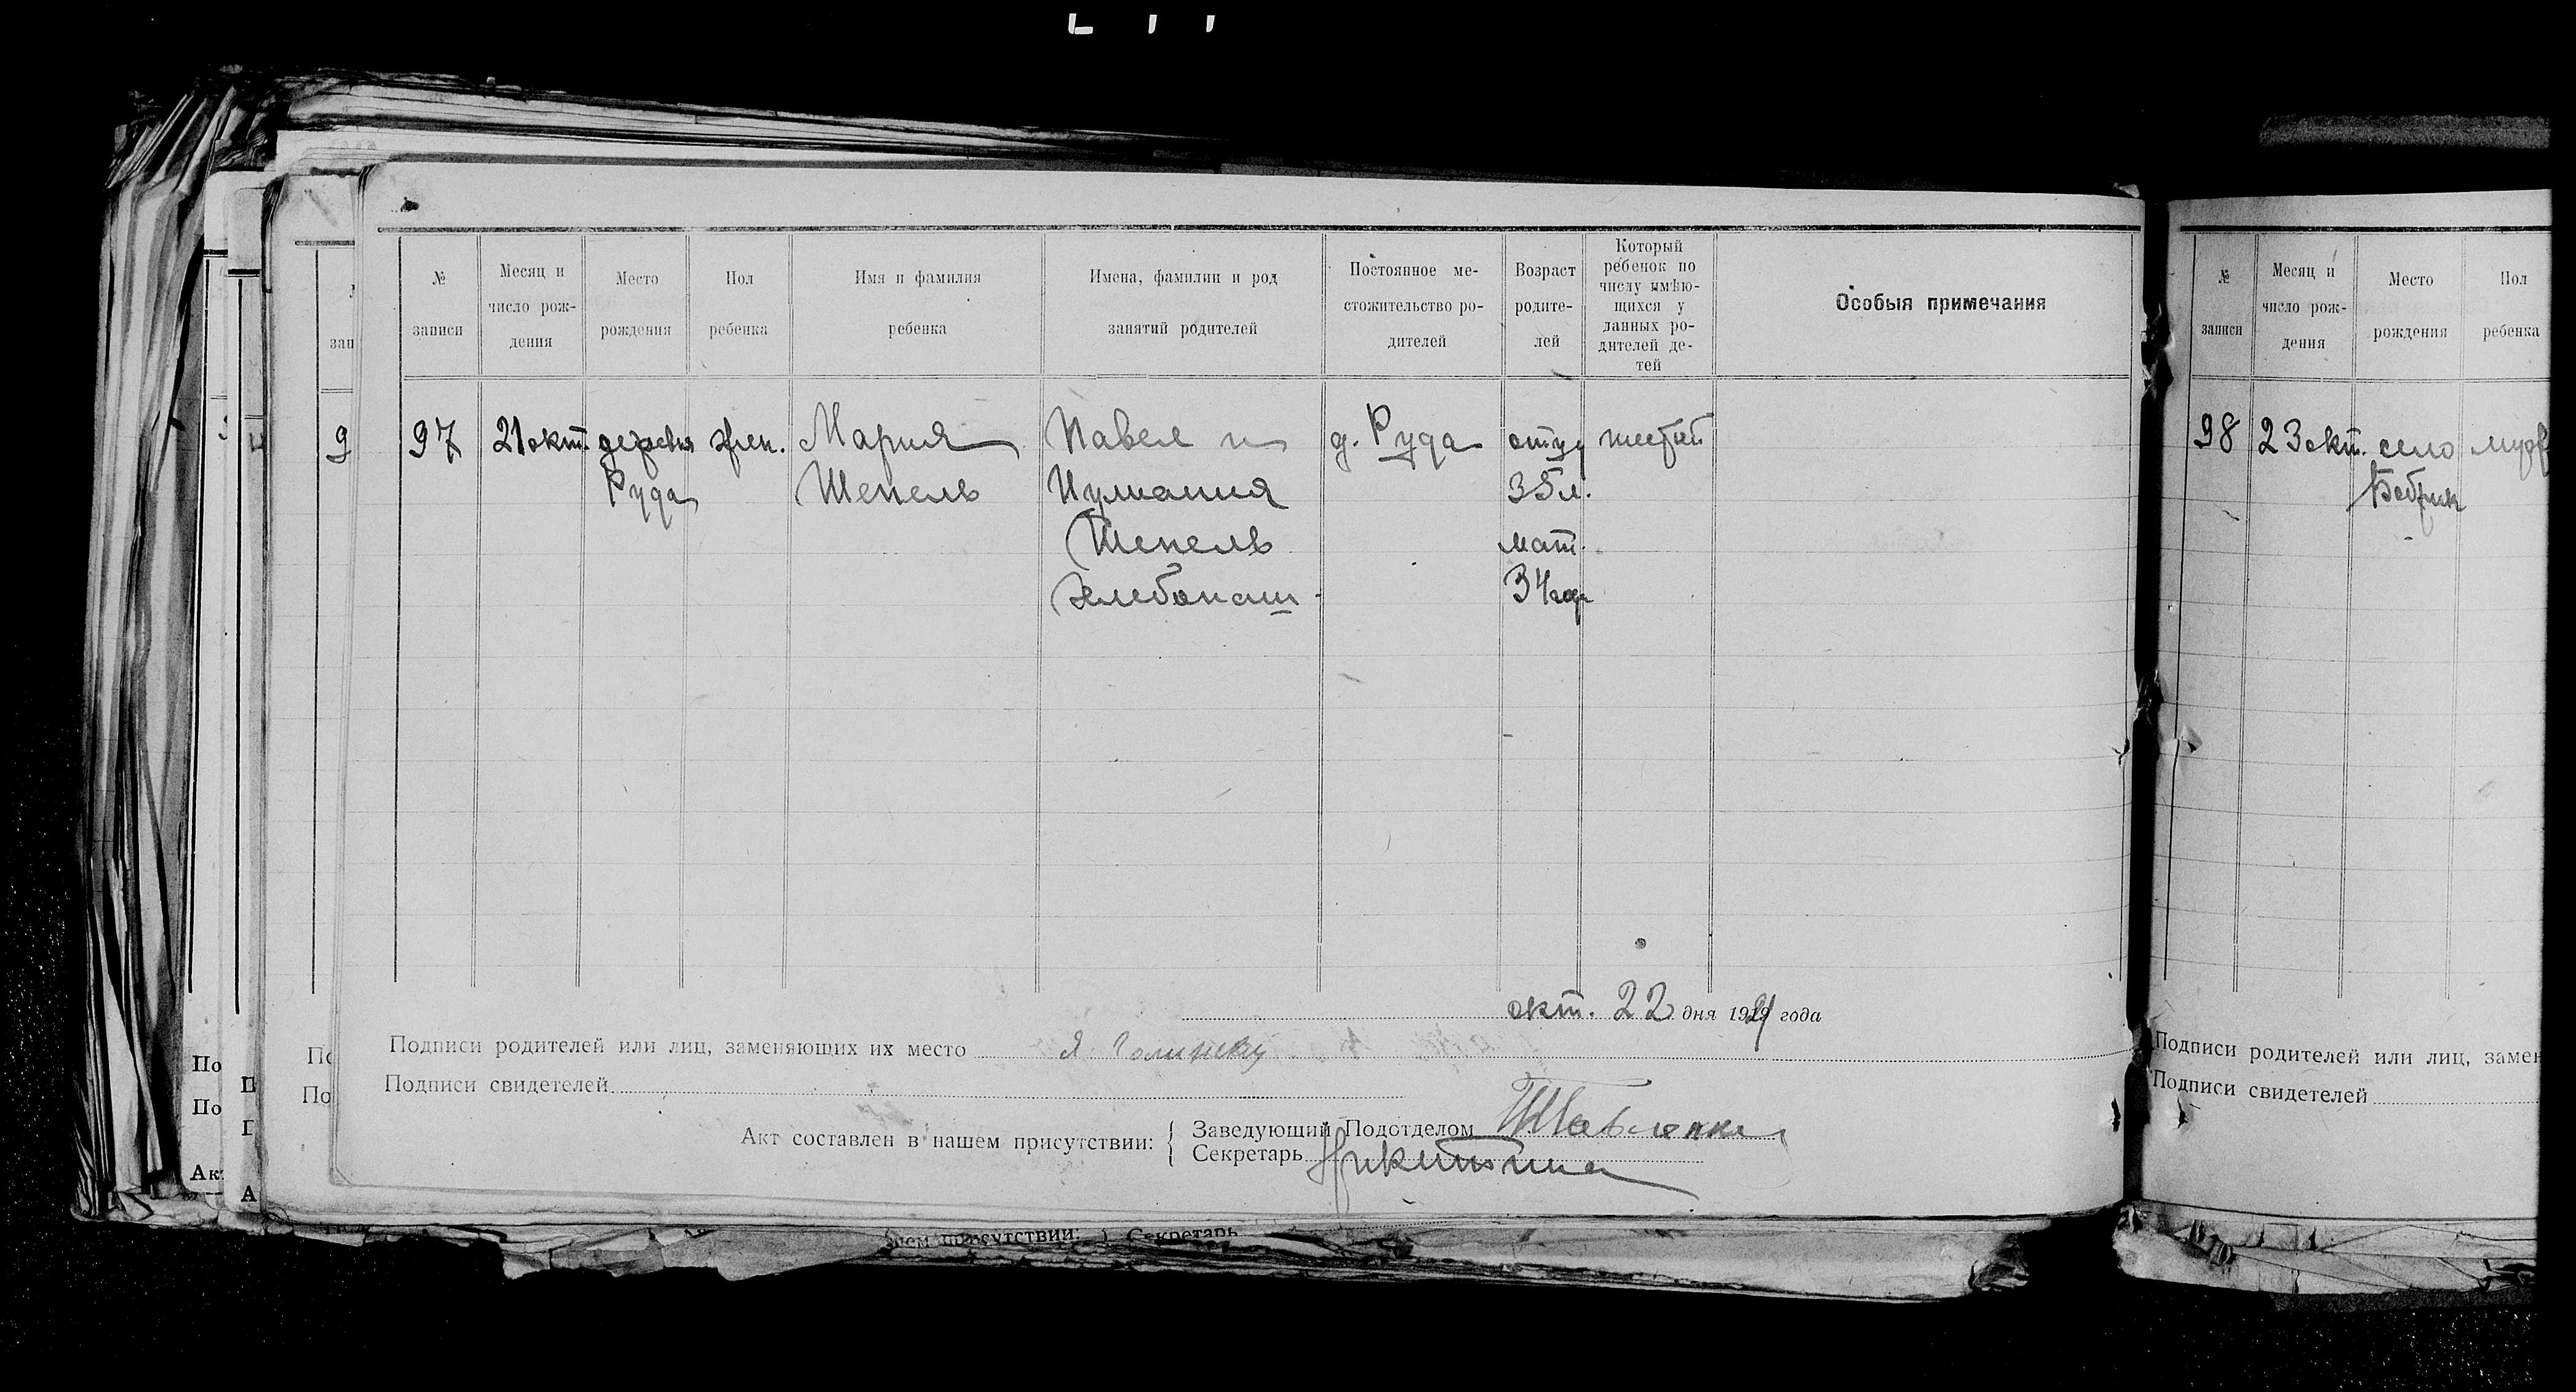 № записи
Месяц и число рождения
Место рождения
Пол ребенка
Имя и фамилия ребенка
Имена, фамилии и род занятий родителей
Постоянное местожительство родителей
Возраст родителей
Который ребенок по числу имѣющихся у данных родителей детей
Особыя примечания
97
21 окт.
деревня
Руда
жен.
Мария
Шепель
Павел и
Шепель
хлебопаш.
д. Руда
отцу
35 л.
мат.
34 год
шестый
окт. 22 дня 1921 года
Подписи родителей или лиц, заменяющих их место
Подписи свидетелей
Акт составлен в нашем присутствии:
Заведующий Подотделом
Секретарь
№ записи
Месяц и число рождения
Место рождения
Пол ребенка
98
23 окт.
село
Бобрик
муж
Подписи родителей или лиц, замен
Подписи свидетелей
зап
9
По
По
По
По
Ак
А
нем присутствии: Секретарь